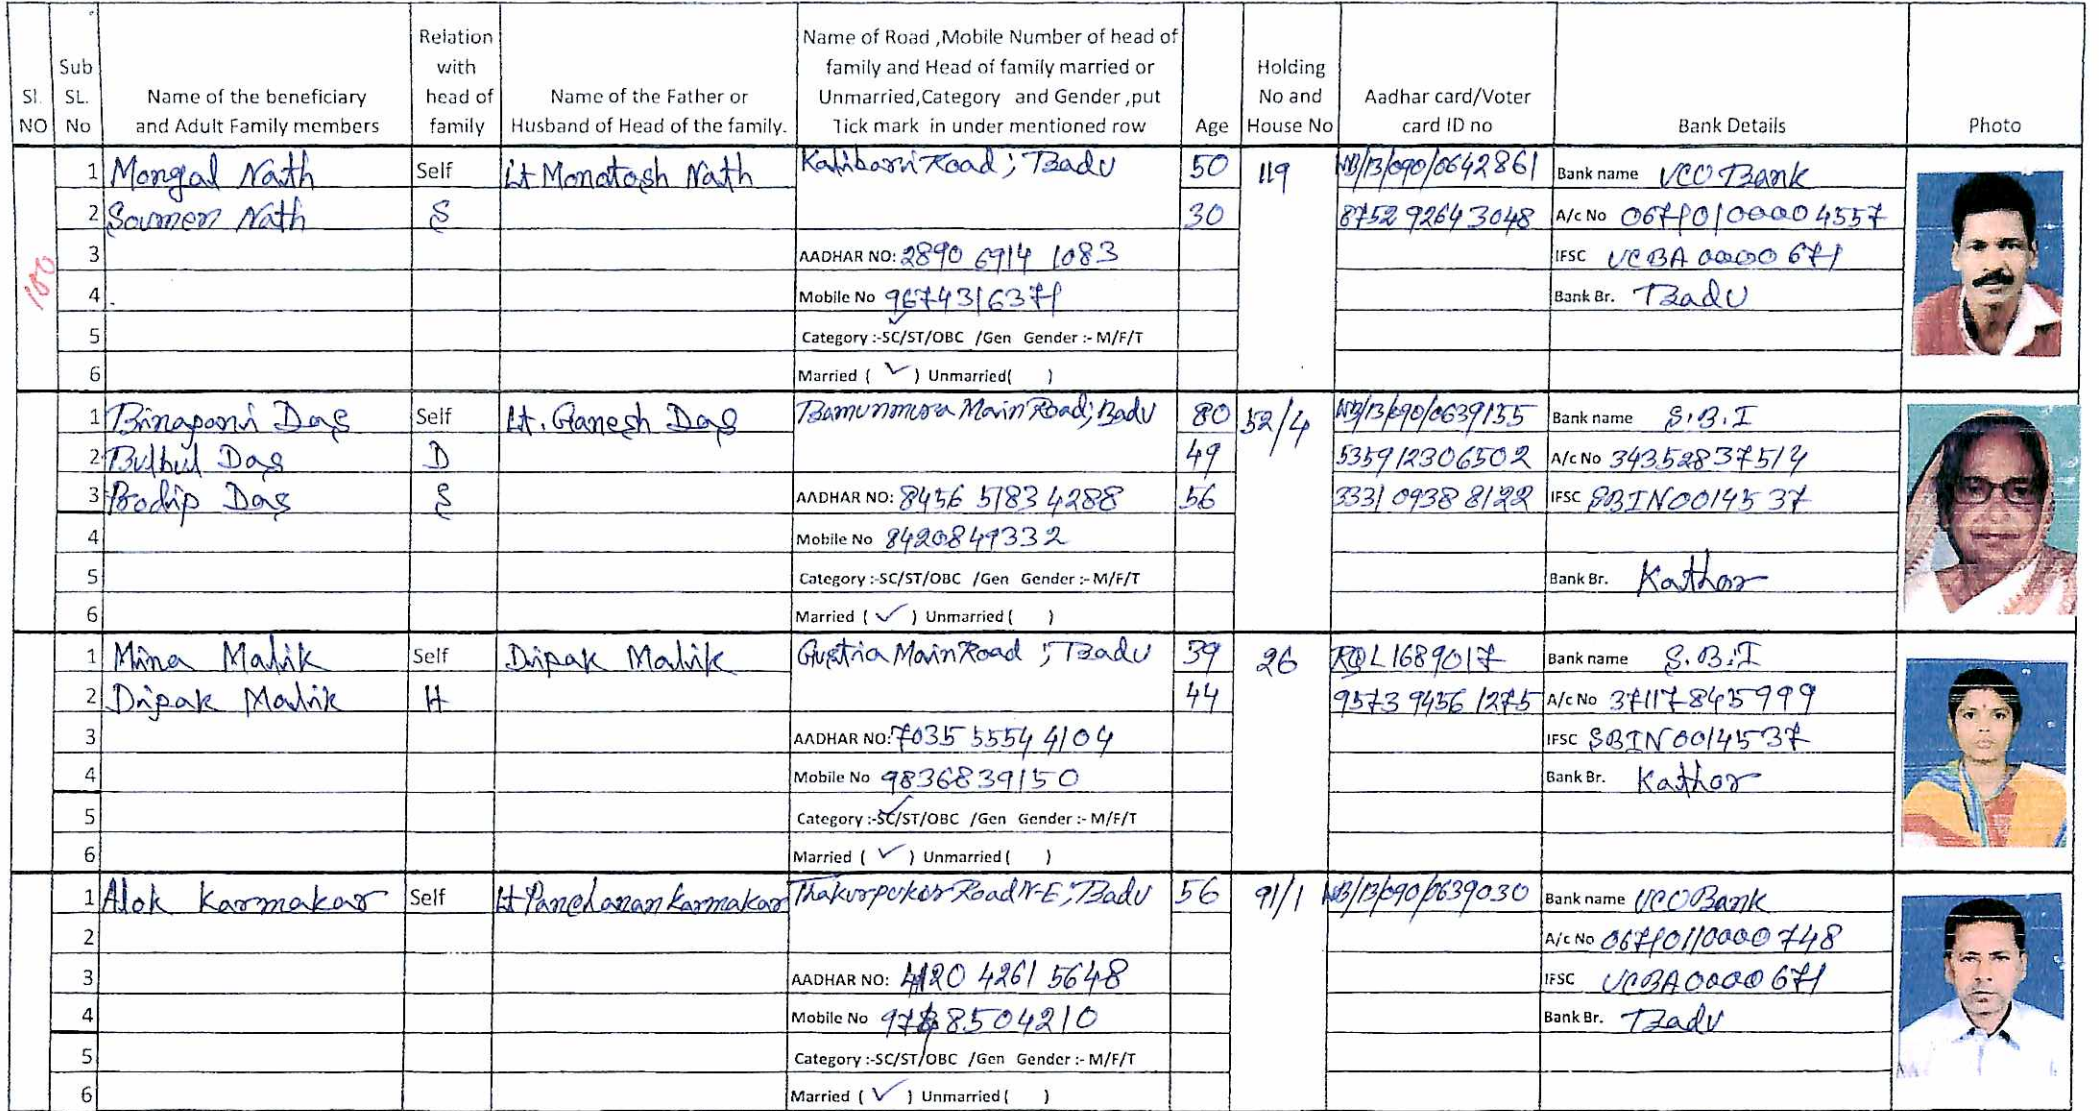 Sl. NO
Sub SL. No
Name of the beneficiary and Adult Family members
Relation with head of family
Name of the Father or Husband of Head of the family.
Name of Road ,Mobile Number of head of family and Head of family married or Unmarried,Category and Gender ,put Tick mark in under mentioned row
Age
Holding No and House No
Aadhar card/Voter card ID no
Bank Details
Photo
1 Mongal Nath Self Lt Monotosh Nath Kalibari Road ; Badu 50 119 WB/13/090/0642861 Bank name UCO Bank
2 Soumen Nath S 30 8752 9264 3048 A/c No 06710100004557
3 AADHAR NO: 2890 6914 1083 IFSC UCBA0000671
100
4 Mobile No 9674316371 Bank Br. Badu
5 Category :-SC/ST/OBC /Gen Gender :- M/F/T
6 Married ( ✓ ) Unmarried( )
1 Binapani Das Self Lt. Ganesh Das Bamunmura Main Road; Badu 80 52/4 WB/13/090/0639155 Bank name S.B.I
2 Bulbul Das D 49 535912306502 A/c No 34352837514
3 Prodip Das S AADHAR NO: 8456 5183 4288 56 3331 0938 8122 IFSC SBIN0014537
4 Mobile No 8420849332
5 Category :-SC/ST/OBC /Gen Gender :- M/F/T Bank Br. Kathor
6 Married ( ✓ ) Unmarried ( )
1 Mina Malik Self Dipak Malik Gustia Main Road ; Badu 39 26 RQL1689017 Bank name S.B.I
2 Dipak Malik H 44 9573 9456 1275 A/c No 37117845999
3 AADHAR NO: 7035 5554 4104 IFSC SBIN0014537
4 Mobile No 9836839150 Bank Br. Kathor
5 Category :-SC/ST/OBC /Gen Gender :- M/F/T
6 Married ( ✓ ) Unmarried ( )
1 Alok Karmakar Self Lt Panchanan Karmakar Thakurpukur Road N-E; Badu 56 91/1 WB/13/090/0639030 Bank name UCO Bank
2 A/c No 06710110000748
3 AADHAR NO: 4120 4261 5648 IFSC UCBA0000671
4 Mobile No Bank Br. Badu
5 Category :-SC/ST/OBC /Gen Gender :- M/F/T
6 Married ( ✓ ) Unmarried ( )